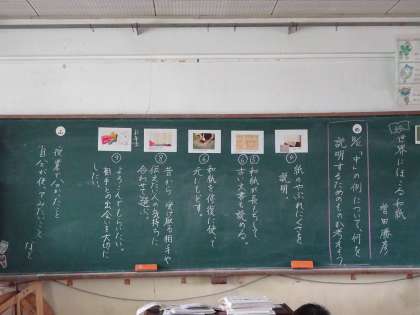 世界にほこる和紙
増田勝彦
め
「中」の例について、何を
説明するためのものか考えよう
④
紙のやぶれにくさを
説明。
⑤
⑥
和紙が長もちして
古い文書も読める。
⑥
和紙を修復に使って
元にもどす。
⑧
昔から
受け取る相手や
伝えたい人の気持ちに
合わせて選ぶ。
⑨
よろこんでもらいたい。
相手との出会いを大切に
したい。
ふ
授業で分かったこと
自分が使ってみたいこと
など